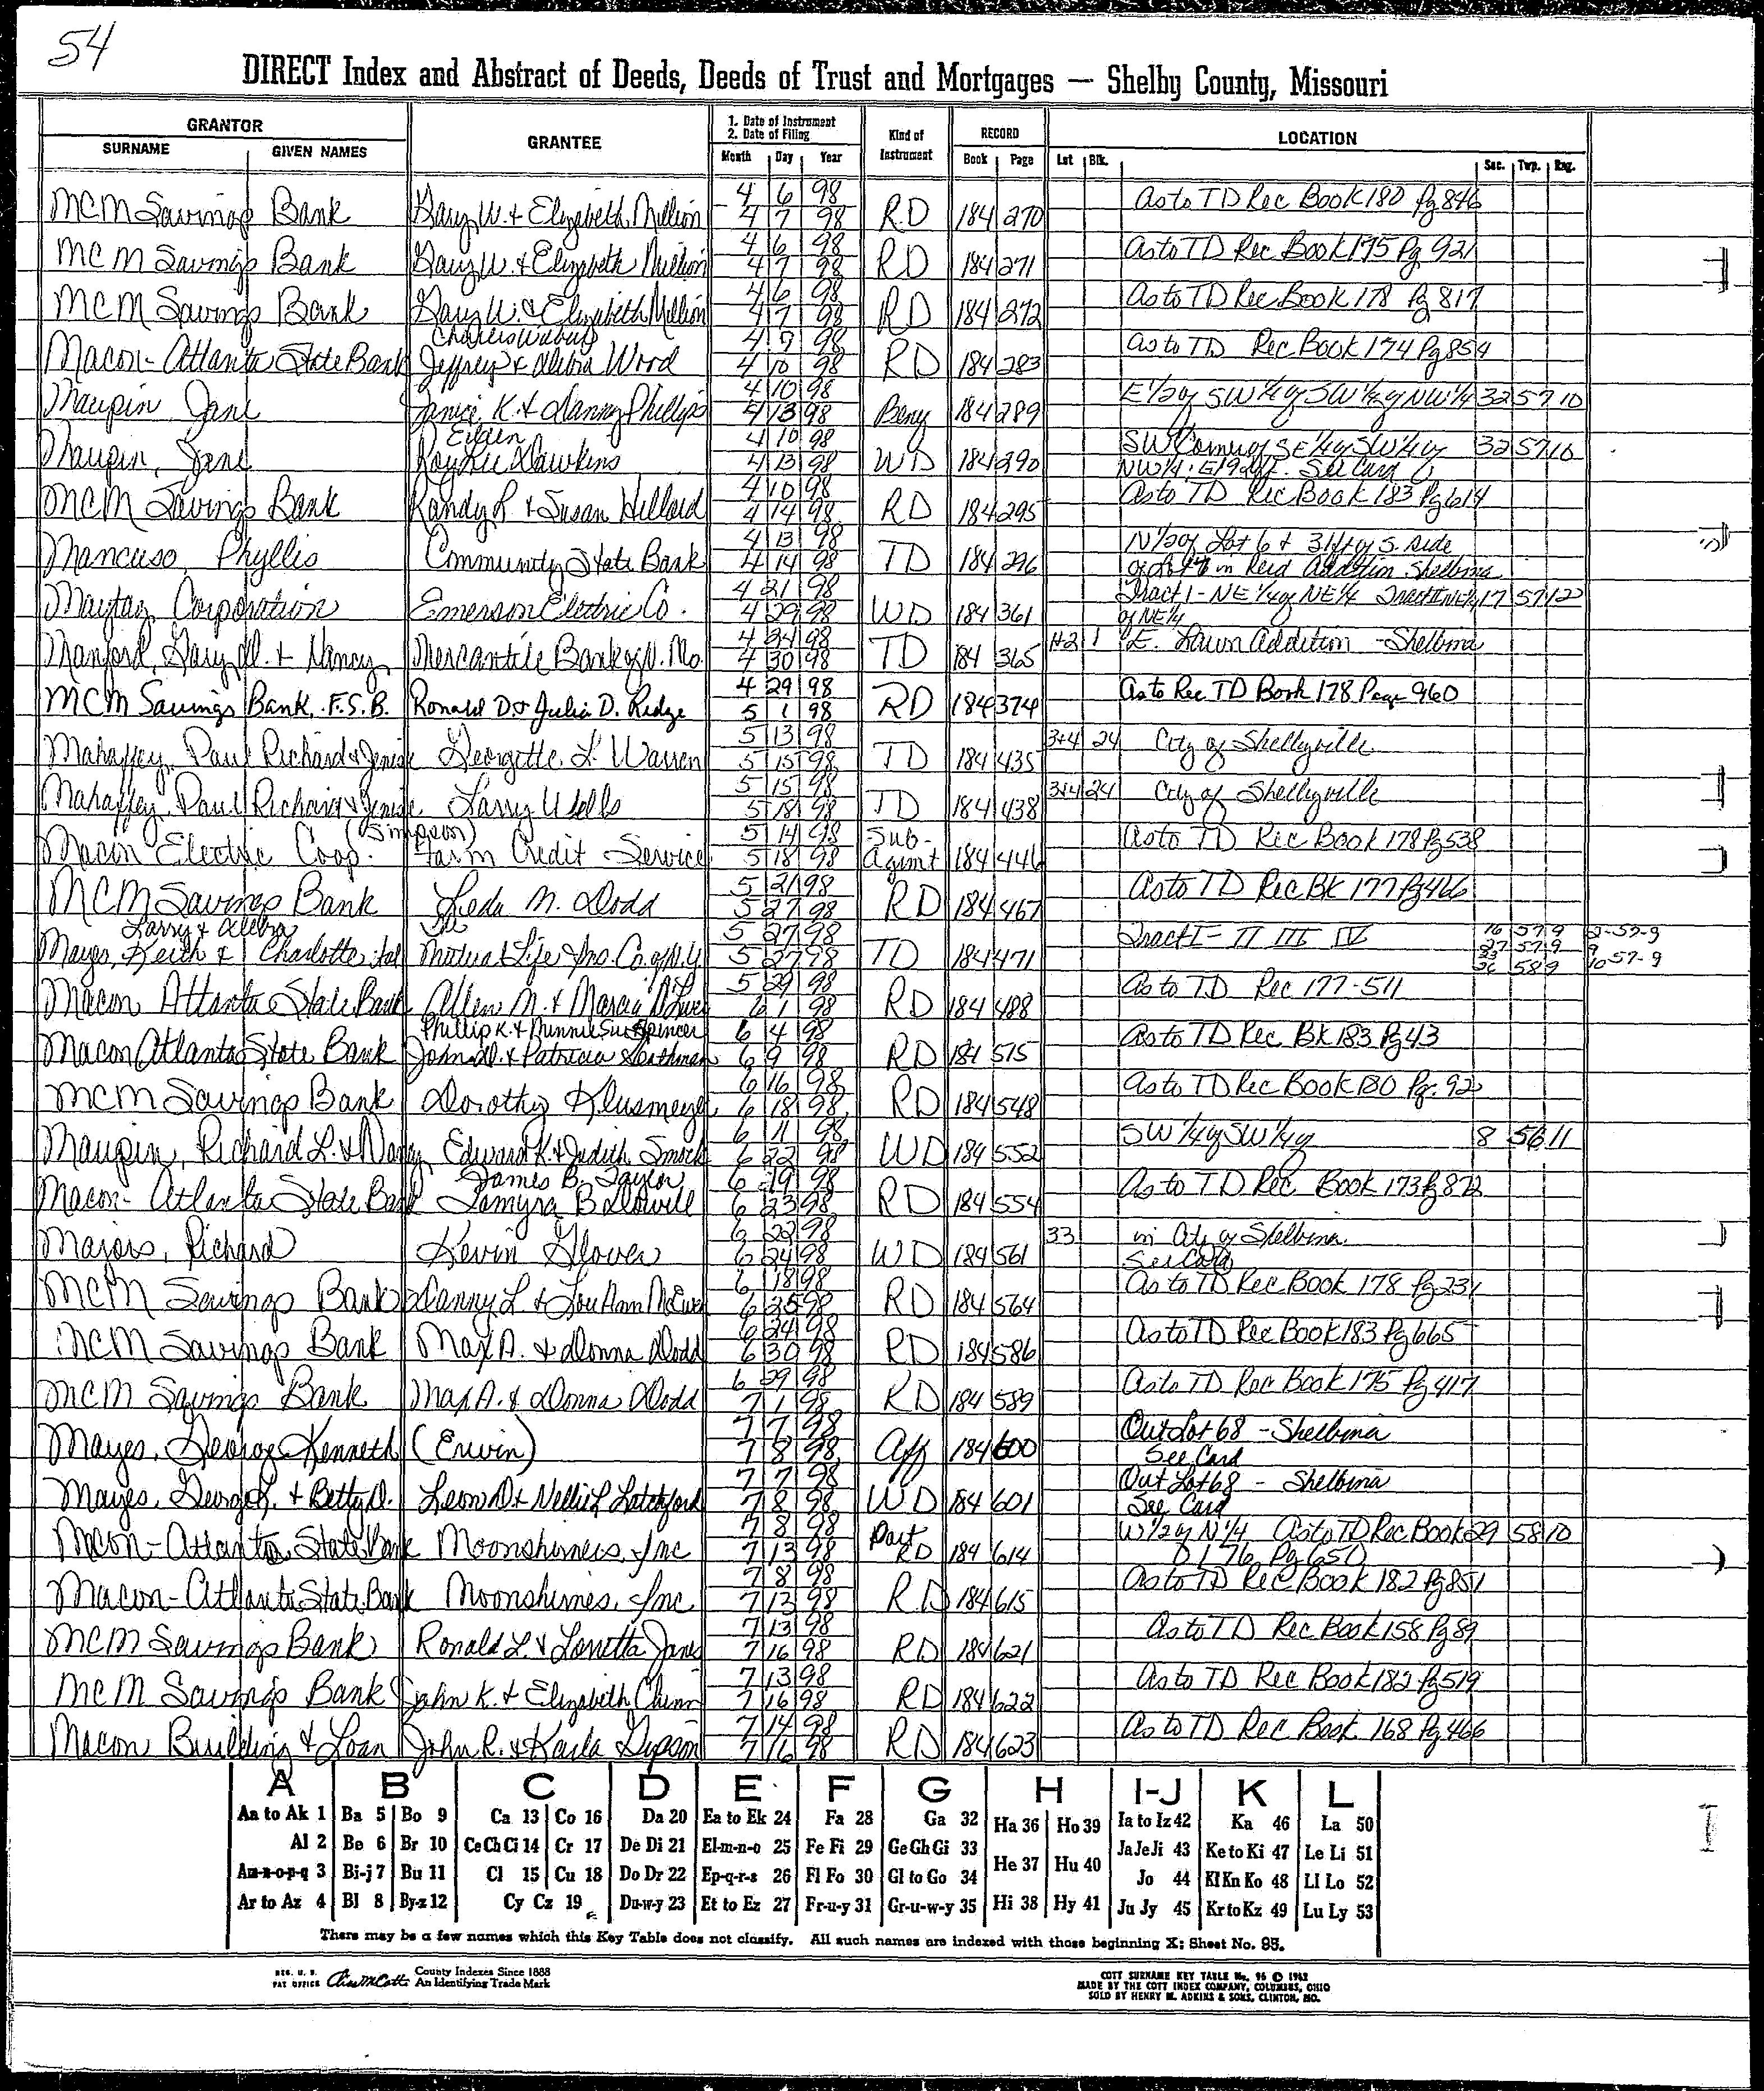 54
DIRECT Index and Abstract of Deeds, Deeds of Trust and Mortgages — Shelby County, Missouri
GRANTOR
SURNAME GIVEN NAMES
GRANTEE
1. Date of Instrument
2. Date of Filing
Month Day Year
Kind of Instrument
RECORD
Book Page
LOCATION
Lot Blk. Sec. Twp. Rng.
MCM Savings Bank Gary W. & Elizabeth Million 4 6 98 4 7 98 RD 184 270 As to TD Rec Book 180 Pg 846
MCM Savings Bank Gary W. & Elizabeth Million 4 6 98 4 7 98 RD 184 271 As to TD Rec Book 175 Pg 921
MCM Savings Bank Gary W. & Elizabeth Million 4 6 98 4 7 98 RD 184 272 As to TD Rec Book 178 Pg 817
Macon-Atlanta State Bank Charles Jeffrey & Debra Wood 4 9 98 4 10 98 RD 184 283 As to TD Rec Book 174 Pg 854
Maupin Jane Janice K. & Danny Phillips 4 10 98 4 13 98 184 289 E 1/2 of SW 1/4 of SW 1/4 of NW 1/4 32 57 10
Maupin, Jane Eileen Roy Lee Hawkins 4 10 98 4 13 98 WD 184 290 SW Corner of SE 1/4 of SW 1/4 of NW 1/4. See Card 32 57 10
MCM Savings Bank Randy R. & Susan 4 10 98 4 14 98 RD 184 295 As to TD Rec Book 183 Pg 614
Mancuso, Phyllis Community State Bank 4 13 98 4 14 98 TD 184 296 N 1/2 of Lot 6 & 31 ft of S. side of Lot in Reid Addition Shelbina
Maytag Corporation Emerson Electric Co. 4 21 98 4 29 98 WD 184 361 Tract 1 - NE 1/4 of NE 1/4 Tract II of NE 1/4 17 57 12
Manford, Gary D. & Nancy Mercantile Bank of N. Mo. 4 24 98 4 30 98 TD 184 365 1+2 1 E. Lawn Addition - Shelbina
MCM Savings Bank, F.S.B. Ronald D. & Julia D. Ridge 4 29 98 5 1 98 RD 184 374 As to Rec TD Book 178 Page 960
Mahaffey, Paul Richard & Georgette L. Warren 5 13 98 5 15 98 TD 184 435 3+4 24 City of Shelbyville
Mahaffey, Paul Richard & Larry Wells 5 15 98 5 18 98 TD 184 438 3+4 24 City of Shelbyville
Macon Electric Coop. (Simpson) Farm Credit Service 5 14 98 5 18 98 Sub-Agmt 184 446 As to TD Rec Book 178 Pg 538
MCM Savings Bank Leda M. Dodd 5 21 98 5 27 98 RD 184 467 As to TD Rec Bk 177 Pg 466
Larry & Debra
Mayes, Keith & Charlotte Mutual Life Ins. Co. of N.Y. 5 27 98 5 27 98 TD 184 471 Tract I - II III IV 57 9 27 57 9 58 9 57-9 10 57-9
Macon Atlanta State Bank Allen M. & Marcia 5 29 98 6 1 98 RD 184 488 As to TD Rec 177-511
Macon Atlanta State Bank Phillip K. & Minnie Sue Spencer John D. & Patricia 6 4 98 6 9 98 RD 184 515 As to TD Rec Bk 183 Pg 43
MCM Savings Bank Dorothy Klusmeyer 6 16 98 6 18 98 RD 184 548 As to TD Rec Book 180 Pg. 92
Maupin, Richard L. & Nancy Edward K. & Judith Smock 6 11 98 6 22 98 WD 184 552 SW 1/4 of SW 1/4 of 8 56 11
Macon-Atlanta State Bank James B. Taylor Tamyra B. 6 19 98 6 23 98 RD 184 554 As to TD Rec Book 173 Pg 872
Majors, Richard Kevin Glover 6 22 98 6 24 98 WD 184 561 33 in City of Shelbina. See Card
MCM Savings Bank Danny L. & Lou Ann McEwen 6 18 98 6 25 98 RD 184 564 As to TD Rec Book 178 Pg 231
MCM Savings Bank Max A. & Donna Dodd 6 24 98 6 30 98 RD 184 586 As to TD Rec Book 183 Pg 665
MCM Savings Bank Max A. & Donna Dodd 6 29 98 7 1 98 RD 184 589 As to TD Rec Book 175 Pg 417
Mayes, George Kenneth (Erwin) 7 7 98 7 8 98 Aff 184 600 Out Lot 68 - Shelbina See Card
Mayes, George L. & Betty D. Leon D. & Nellie L. Latchford 7 7 98 7 8 98 WD 184 601 Out Lot 68 - Shelbina See Card
Macon-Atlanta State Bank Moonshiners, Inc 7 8 98 7 13 98 Part RD 184 614 W 1/2 of N 1/4 As to TD Rec Book 176 Pg 650 29 58 10
Macon-Atlanta State Bank Moonshiners, Inc. 7 8 98 7 13 98 RD 184 615 As to TD Rec Book 182 Pg 851
MCM Savings Bank Ronald L. & Loretta Janes 7 13 98 7 16 98 RD 184 621 As to TD Rec Book 158 Pg 89
MCM Savings Bank John K. & Elizabeth Chinn 7 13 98 7 16 98 RD 184 622 As to TD Rec Book 182 Pg 519
Macon Building & Loan John R. & Karla Gipson 7 14 98 7 16 98 RD 184 623 As to TD Rec Book 168 Pg 466
A B C D E F G H I-J K L
Aa to Ak 1 Ba 5 Bo 9 Ca 13 Co 16 Da 20 Ea to Ek 24 Fa 28 Ga 32 Ha 36 Ho 39 Ia to Iz 42 Ka 46 La 50
Al 2 Be 6 Br 10 Ce Ch Ci 14 Cr 17 De Di 21 El-m-n-o 25 Fe Fi 29 Ge Gh Gi 33 He 37 Hu 40 Ja Je Ji 43 Ke to Ki 47 Le Li 51
Am-n-o-p-q 3 Bi-j 7 Bu 11 Cl 15 Cu 18 Do Dr 22 Ep-q-r-s 26 Fl Fo 30 Gl to Go 34 Jo 44 Kl Kn Ko 48 Ll Lo 52
Ar to Az 4 Bl 8 By-z 12 Cy Cz 19 Du-w-y 23 Et to Ez 27 Fr-u-y 31 Gr-u-w-y 35 Hi 38 Hy 41 Ju Jy 45 Kr to Kz 49 Lu Ly 53
There may be a few names which this Key Table does not classify. All such names are indexed with those beginning X; Sheet No. 95.
REG. U. S. PAT OFFICE County Indexes Since 1888 An Identifying Trade Mark
COTT SURNAME KEY TABLE No. 96 © 1962
MADE BY THE COTT INDEX COMPANY, COLUMBUS, OHIO
SOLD BY HENRY M. ADKINS & SONS, CLINTON, MO.